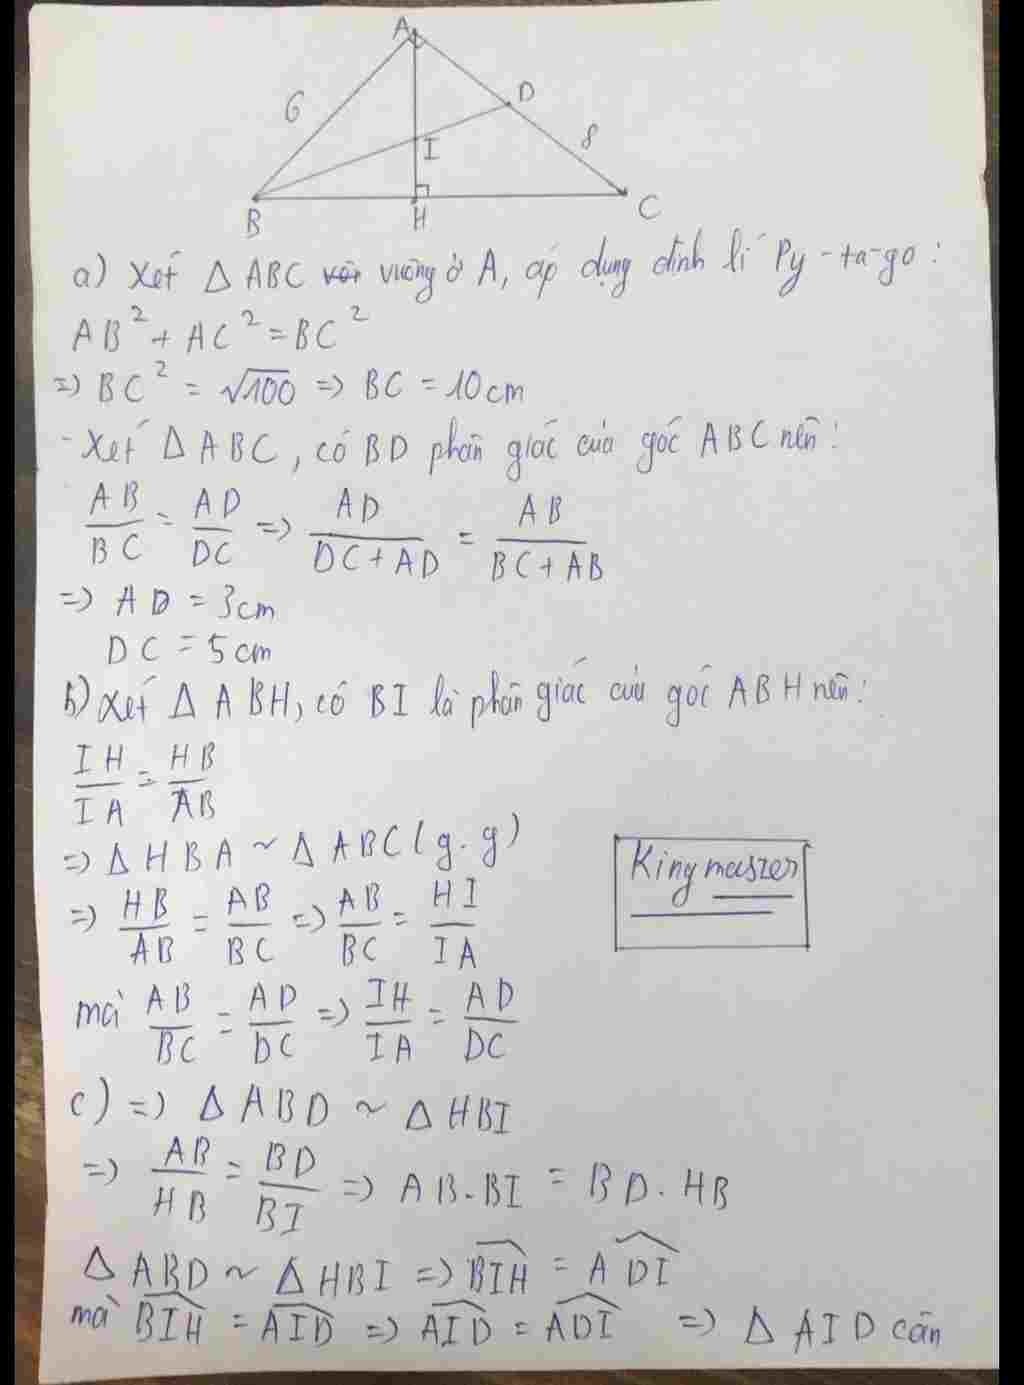 A
6
D
8
I
B
H
C
a) Xét Δ ABC vuông ở A, áp dụng định lí Py-ta-go:
AB² + AC² = BC²
=> BC² = √100 => BC = 10cm
- Xét Δ ABC, có BD phân giác của góc ABC nên:
AB/BC = AD/DC => AD/(DC + AD) = AB/(BC + AB)
=> AD = 3cm
DC = 5cm
b) Xét Δ ABH, có BI là phân giác của góc ABH nên:
IH/IA = HB/AB
=> Δ HBA ~ Δ ABC (g.g)
King master
=> HB/AB = AB/BC => AB/BC = HI/IA
mà AB/BC = AD/DC => IH/IA = AD/DC
c) => Δ ABD ~ Δ HBI
=> AB/HB = BD/BI => AB.BI = BD.HB
Δ ABD ~ Δ HBI => ^BIH = ^ADI
mà ^BIH = ^AID => ^AID = ^ADI => Δ AID cân